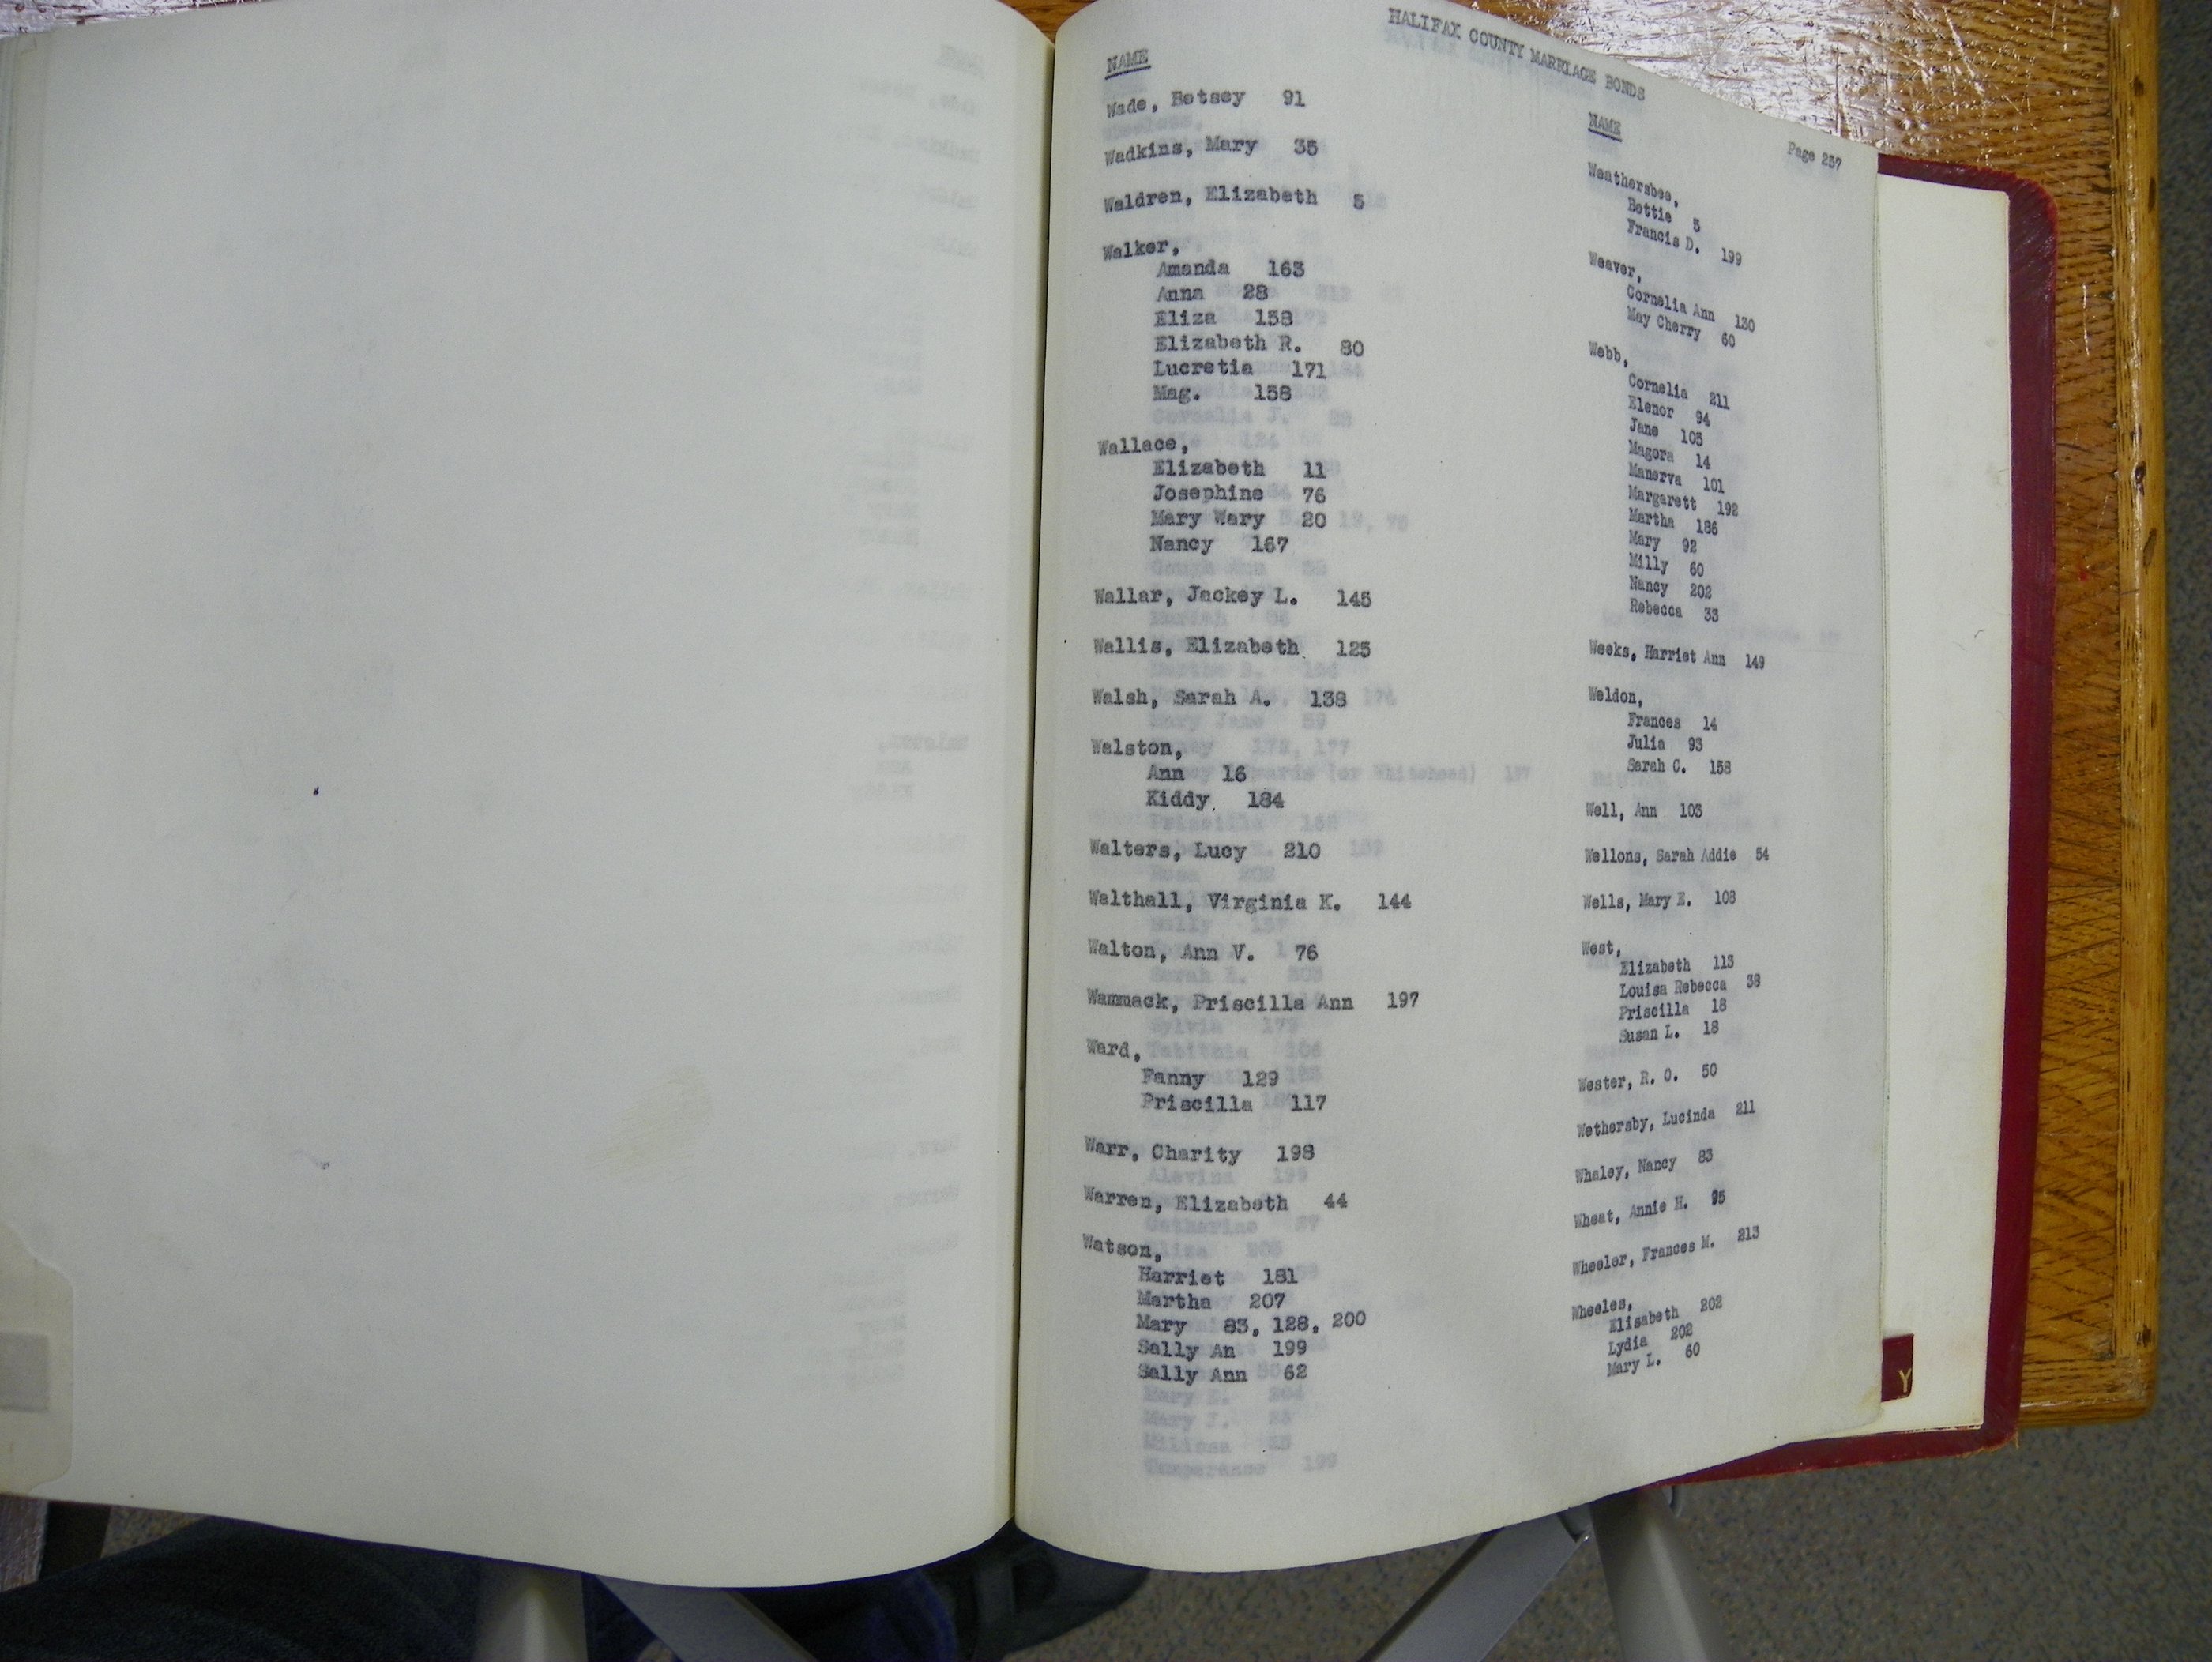 HALIFAX COUNTY MARRIAGE BONDS
Page 237
NAME
Wade, Betsey 91
Wadkins, Mary 35
Waldren, Elizabeth 5
Walker,
Amanda 163
Anna 28
Eliza 158
Elizabeth R. 80
Lucretia 171
Mag. 158
Wallace,
Elizabeth 11
Josephine 76
Mary Wary 20
Nancy 167
Wallar, Jackey L. 145
Wallis, Elizabeth 125
Walsh, Sarah A. 138
Walston,
Ann 16
Kiddy 184
Walters, Lucy 210
Walthall, Virginia K. 144
Walton, Ann V. 76
Wammack, Priscilla Ann 197
Ward,
Fanny 129
Priscilla 117
Warr, Charity 198
Warren, Elizabeth 44
Watson,
Harriet 181
Martha 207
Mary 83, 128, 200
Sally An 199
Sally Ann 62
NAME
Weathersbee,
Bettie 5
Francis D. 199
Weaver,
Cornelia Ann 130
May Cherry 60
Webb,
Cornelia 211
Elenor 94
Jane 103
Magora 14
Manerva 101
Margarett 192
Martha 186
Mary 92
Milly 60
Nancy 202
Rebecca 33
Weeks, Harriet Ann 149
Weldon,
Frances 14
Julia 93
Sarah C. 158
Well, Ann 103
Wellons, Sarah Addie 54
Wells, Mary E. 108
West,
Elizabeth 113
Louisa Rebecca 38
Priscilla 18
Susan L. 18
Wester, R. O. 50
Wethersby, Lucinda 211
Whaley, Nancy 83
Wheat, Annie H. 95
Wheeler, Frances M. 213
Wheeles,
Elisabeth 202
Lydia 202
Mary L. 60
Y